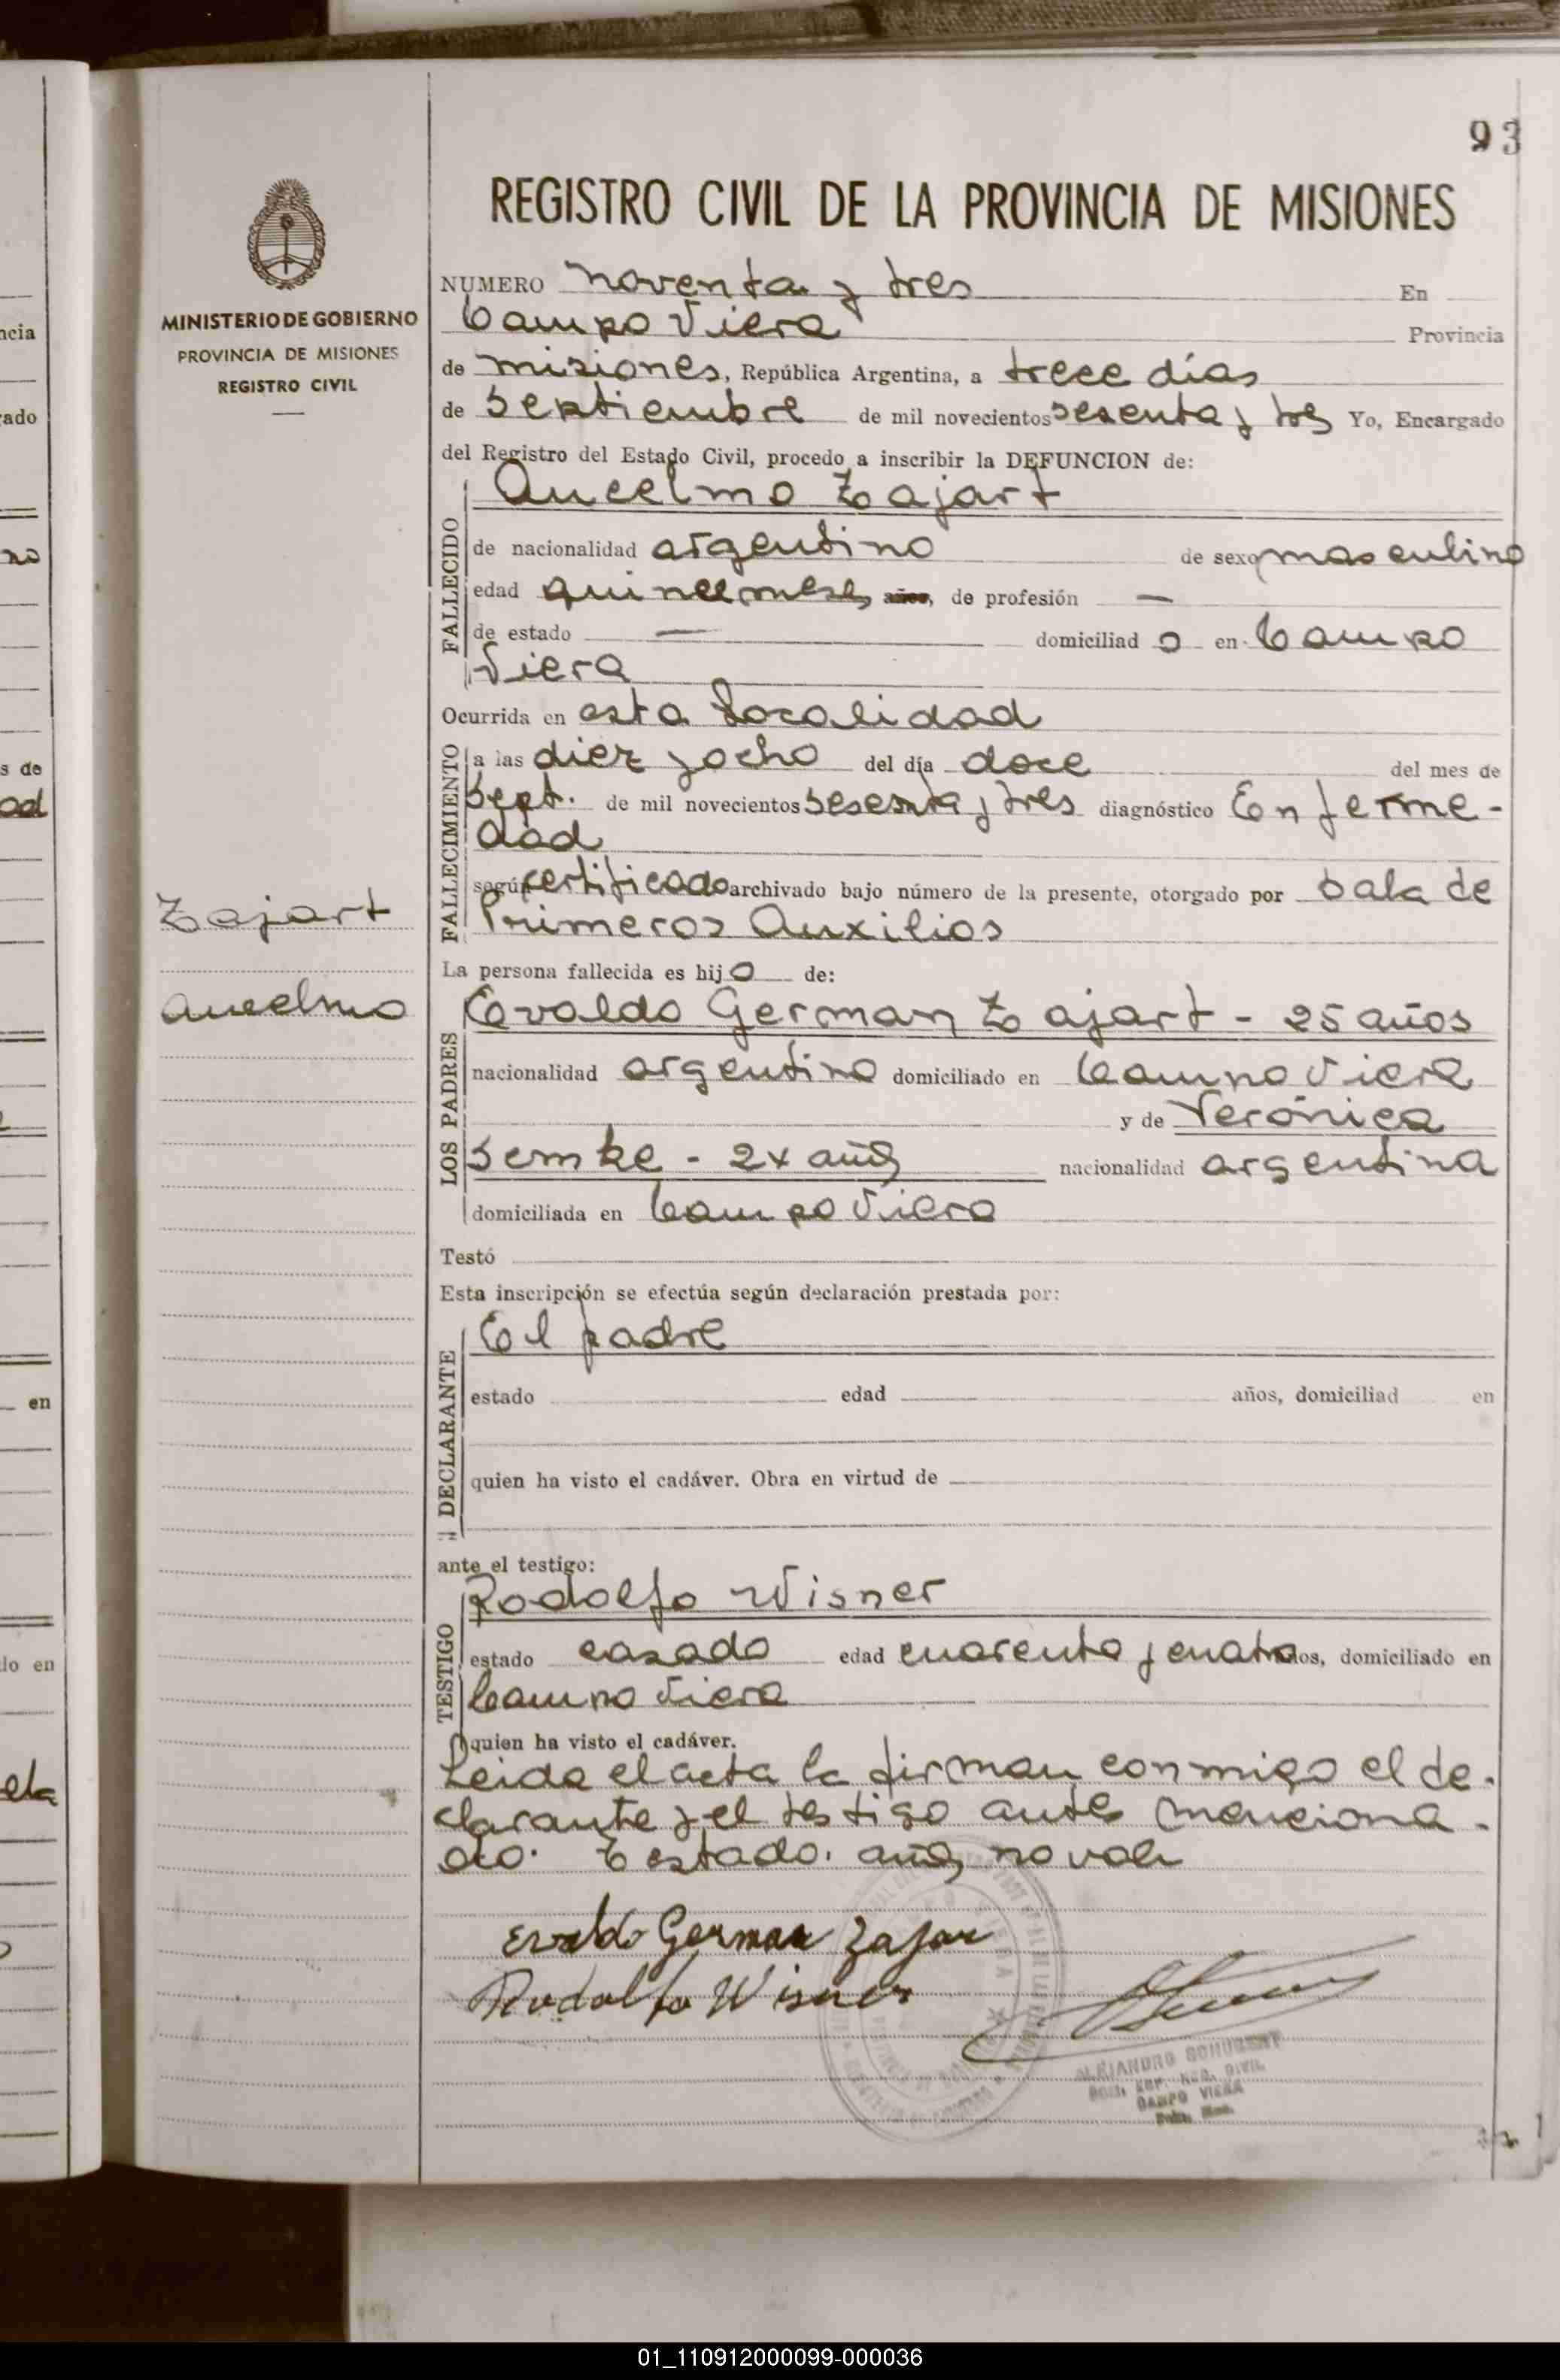 93
REGISTRO CIVIL DE LA PROVINCIA DE MISIONES
MINISTERIO DE GOBIERNO
PROVINCIA DE MISIONES
REGISTRO CIVIL
NUMERO noventa y tres En
Campo Viera Provincia
de misiones, República Argentina, a trece días
de Septiembre de mil novecientos sesenta y tres Yo, Encargado
del Registro del Estado Civil, procedo a inscribir la DEFUNCION de:
FALLECIDO
Ancelmo Zajart
de nacionalidad argentino de sexo masculino
edad quince meses años, de profesión —
de estado — domiciliado en Campo
Viera
Ocurrida en esta localidad
FALLECIMIENTO
a las diez y ocho del día doce del mes de
Sept. de mil novecientos sesenta y tres diagnóstico Enferme-
dad
según certificado archivado bajo número de la presente, otorgado por Sala de
Primeros Auxilios
Zajart
Ancelmo
La persona fallecida es hijo de:
LOS PADRES
Evaldo German Zajart - 25 años
nacionalidad argentino domiciliado en Campo Viera
y de Verónica
Semke - 24 años nacionalidad argentina
domiciliada en Campo Viera
Testó
Esta inscripción se efectúa según declaración prestada por:
DECLARANTE
El padre
estado edad años, domiciliad en
quien ha visto el cadáver. Obra en virtud de
ante el testigo:
TESTIGO
Rodolfo Wisner
estado casado edad cuarenta y cuatro años, domiciliado en
Campo Viera
quien ha visto el cadáver.
Leida el acta la firman conmigo el de-
clarante y el testigo antes menciona-
do. Testado. años no vale
Evaldo German Zajar
Rodolfo Wisner
ALEJANDRO SCHUBERT
CAMPO VIERA
01_110912000099-000036